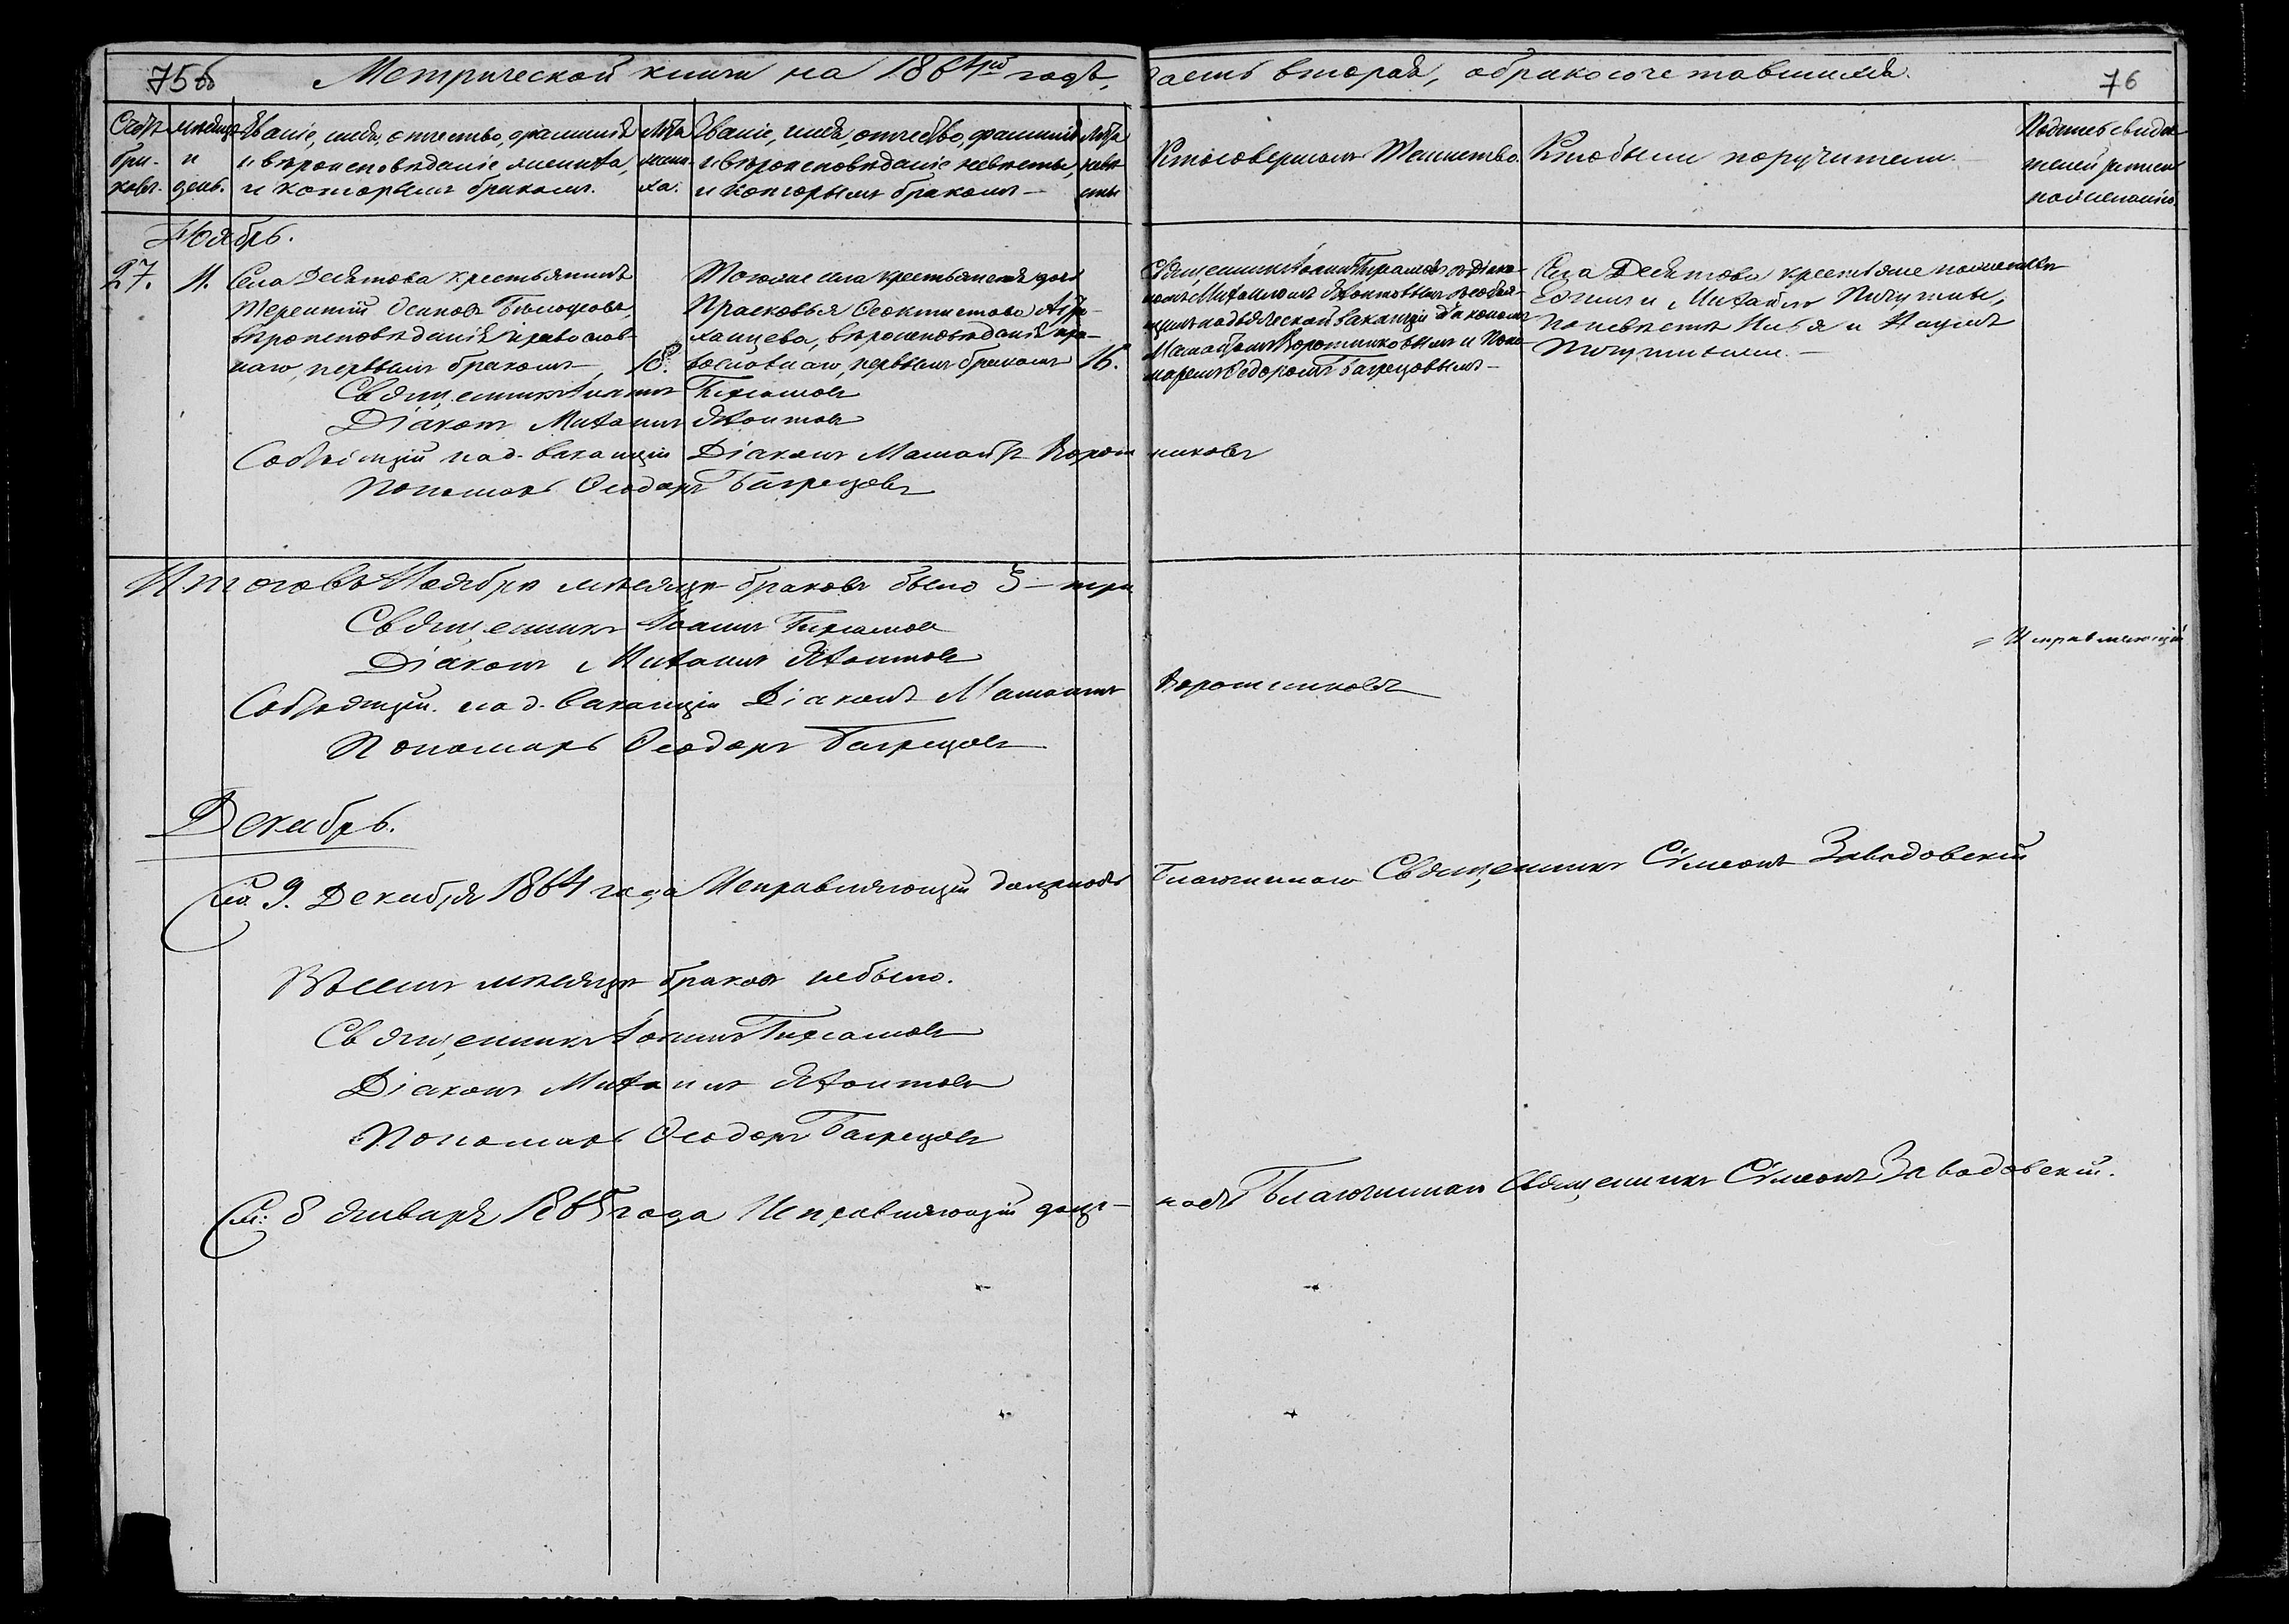 75об
Метрической книги на 1864й годъ, часть вторая, о бракосочетавшихся.
76
Счетъ браковъ.
Мѣсяцъ и день.
Званіе, имя, отчество, фамилія
и вѣроисповѣданіе жениха,
и которымъ бракомъ.
Лѣта жениха.
Званіе, имя, отчество, фамилія
и вѣроисповѣданіе невѣсты,
и которымъ бракомъ
Лѣта невѣсты
Кто совершалъ Таинство.
Кто были поручители.
Подпись свидѣтелей записи
по желанію.
Ноябрь.
27.
11.
Села Десятова крестьянинъ
Терентій Осиповъ
вѣроисповѣданія православ-
наго, первымъ бракомъ
18.
Тогоже села крестьянская дочь
Прасковья Феоктистова Астра-
ханцева, вѣроисповѣданія пра-
вославнаго, первымъ бракомъ
16.
Священникъ Іоаннъ съ Діако-
номъ Михаиломъ
вакансіи Діакономъ
Воротниковымъ и Поно-
маремъ Федоромъ Багрецовымъ
Села Десятова крестьяне по женихѣ
и Михаилъ Пичугины,
по невѣстѣ Илья и Наумъ
Священникъ Іоаннъ
Діаконъ Михаилъ
вакансіи Діаконъ Воротниковъ
Пономарь Феодоръ Багрецовъ
Итого въ Ноябрѣ мѣсяцѣ браковъ было 3 три
Священникъ Іоаннъ
Діаконъ Михаилъ
вакансіи Діаконъ Воротниковъ
Пономарь Феодоръ Багрецовъ
Исправляющій
Декабрь.
9. Декабря 1864 года Исправляющій должность Благочиннаго Священникъ Сѵмеонъ Заводовскій
Въ семъ мѣсяцѣ браковъ небыло.
Священникъ Іоаннъ
Діаконъ Михаилъ
Пономарь Феодоръ Багрецовъ
8 Января 1865 года Исправляющій должность Благочиннаго Священникъ Сѵмеонъ Заводовскій.